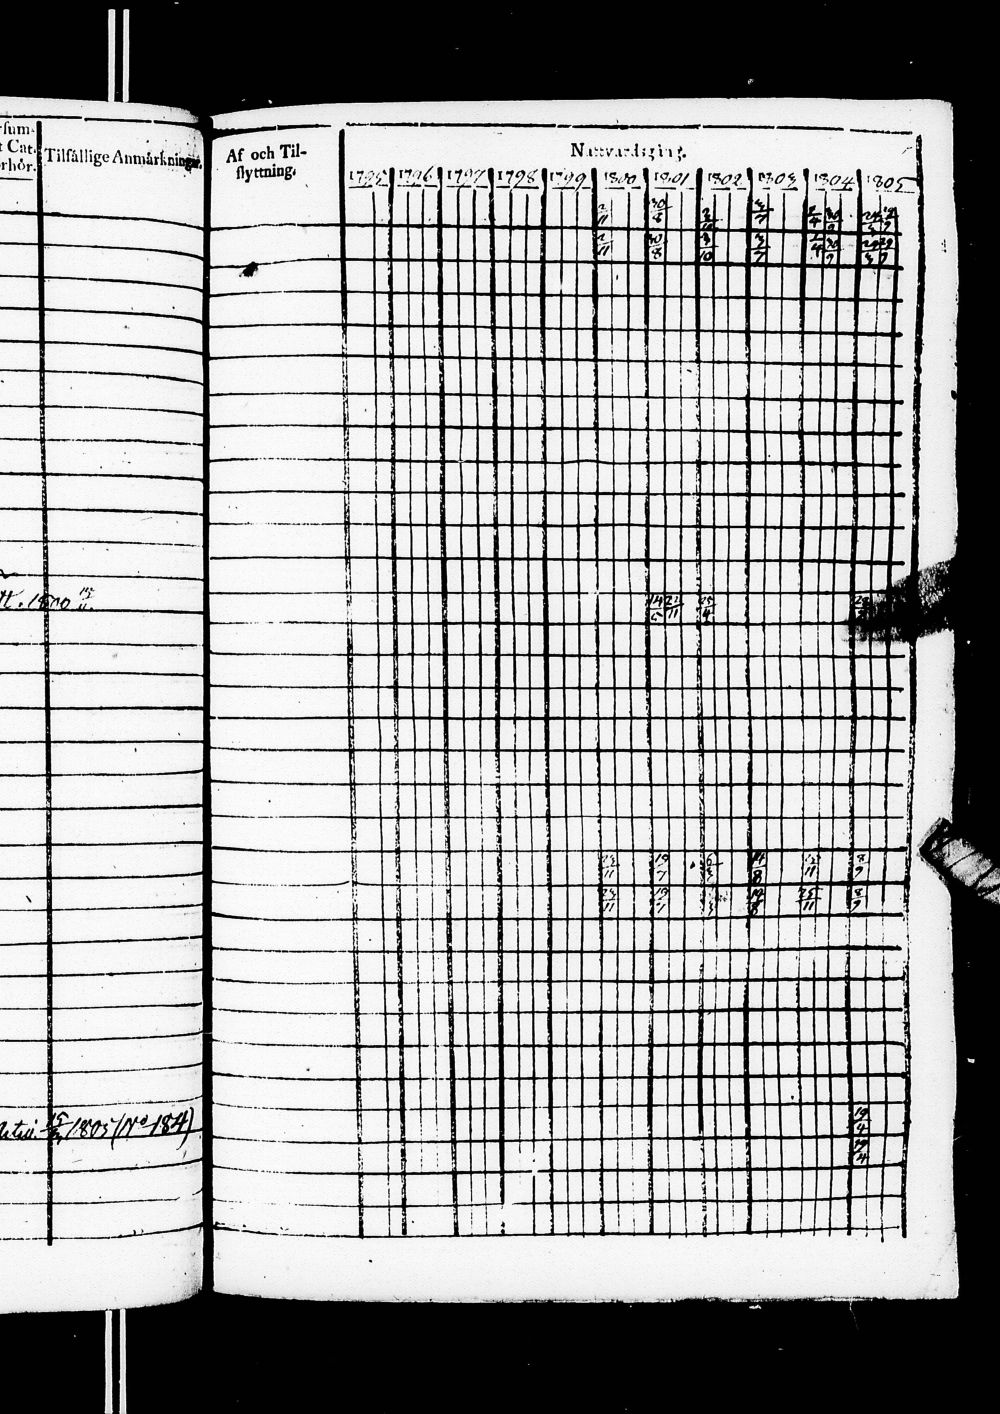 rsum-
t Cat.
rhör.
Tilfällige Anmärkningar.
Af och Til-
flyttning.
Nattvardsgång.
1795 1796 1797 1798 1799 1800 1801 1802 1803 1804 1805
2/11 30/8 3/10 3/7 2/4 30/9
2/11 30/8 3/10 3/7 2/4 30/9 24/3 29/9
tt. 1800
14/5 21/11 25/4
23/11 19/7 6/3 14/8 11 8/9
23/11 19/7 14/8 25/11 8/9
1805 (No 184)
19/4
19/4